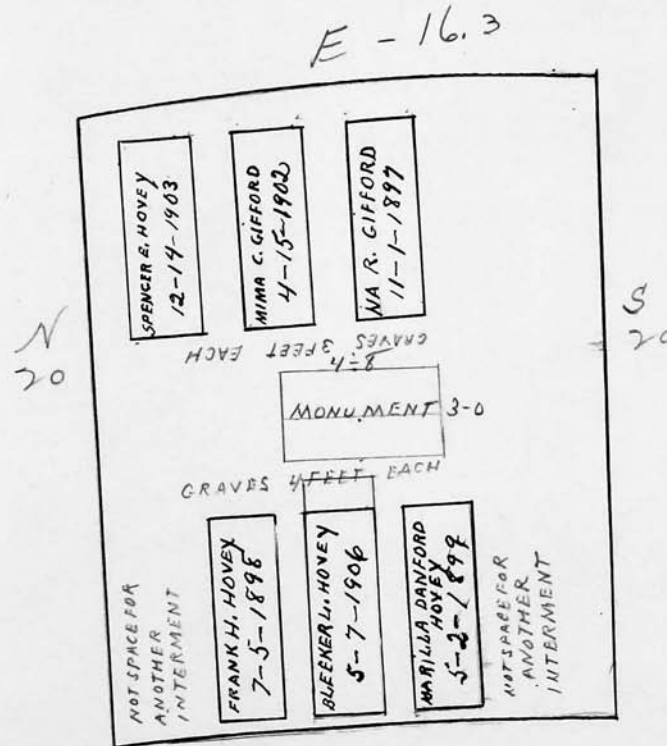 E - 16.3
SPENCER E. HOVEY
12-14-1903
MIMA C. GIFFORD
4-15-1902
NA R. GIFFORD
11-1-1897
N
20
S
20
GRAVES 3 FEET EACH
4-8
MONUMENT 3-0
GRAVES 4 FEET EACH
NOT SPACE FOR
ANOTHER
INTERMENT
FRANK H. HOVEY
7-5-1898
BLEEKER L. HOVEY
5-7-1906
MARILLA DANFORD
HOVEY
5-2-1899
NOT SPACE FOR
ANOTHER
INTERMENT